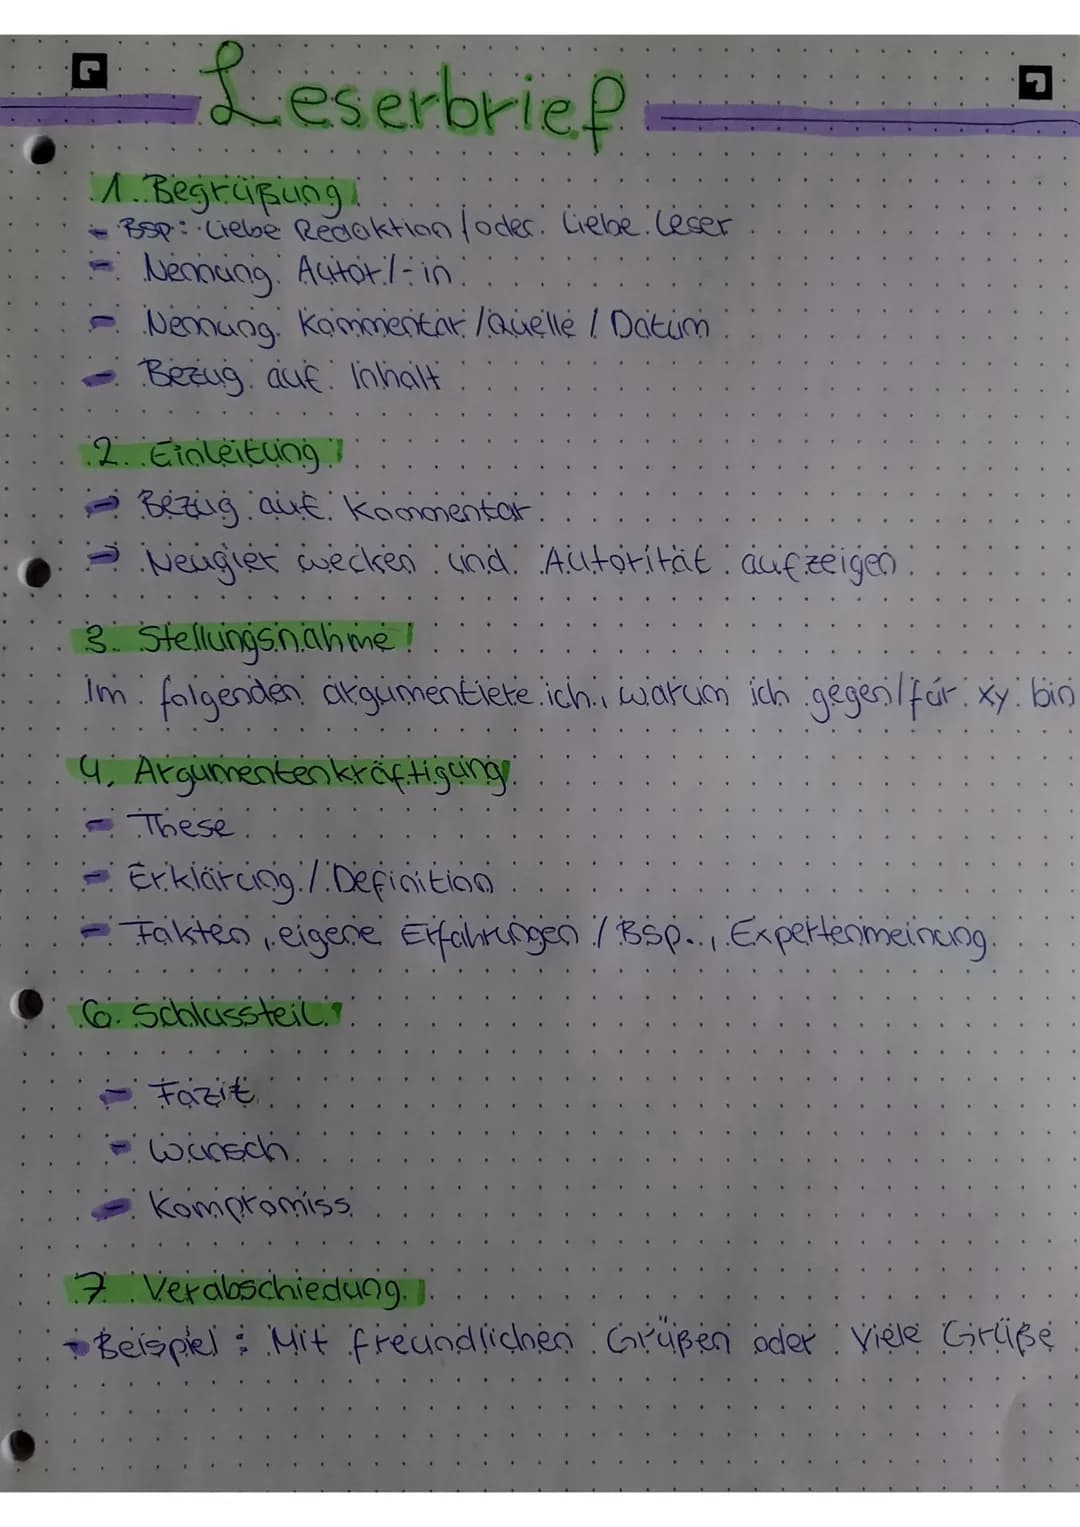 Leserbrief
1. Begrüßung
- Bsp: Liebe Redaktion / oder Liebe Leser
- Nennung Autor/-in
- Nennung Kommentar / Quelle / Datum
- Bezug auf Inhalt
2. Einleitung
→ Bezug auf Kommentar
→ Neugier wecken und Autorität aufzeigen
3. Stellungsnahme
Im folgenden argumentiere ich, warum ich gegen/für xy bin
4. Argumentenkräftigung
- These
- Erklärung / Definition
- Fakten, eigene Erfahrungen / Bsp., Expertenmeinung
6. Schlussteil
- Fazit
- Wunsch
- Kompromiss
7. Verabschiedung
- Beispiel: Mit freundlichen Grüßen oder Viele Grüße